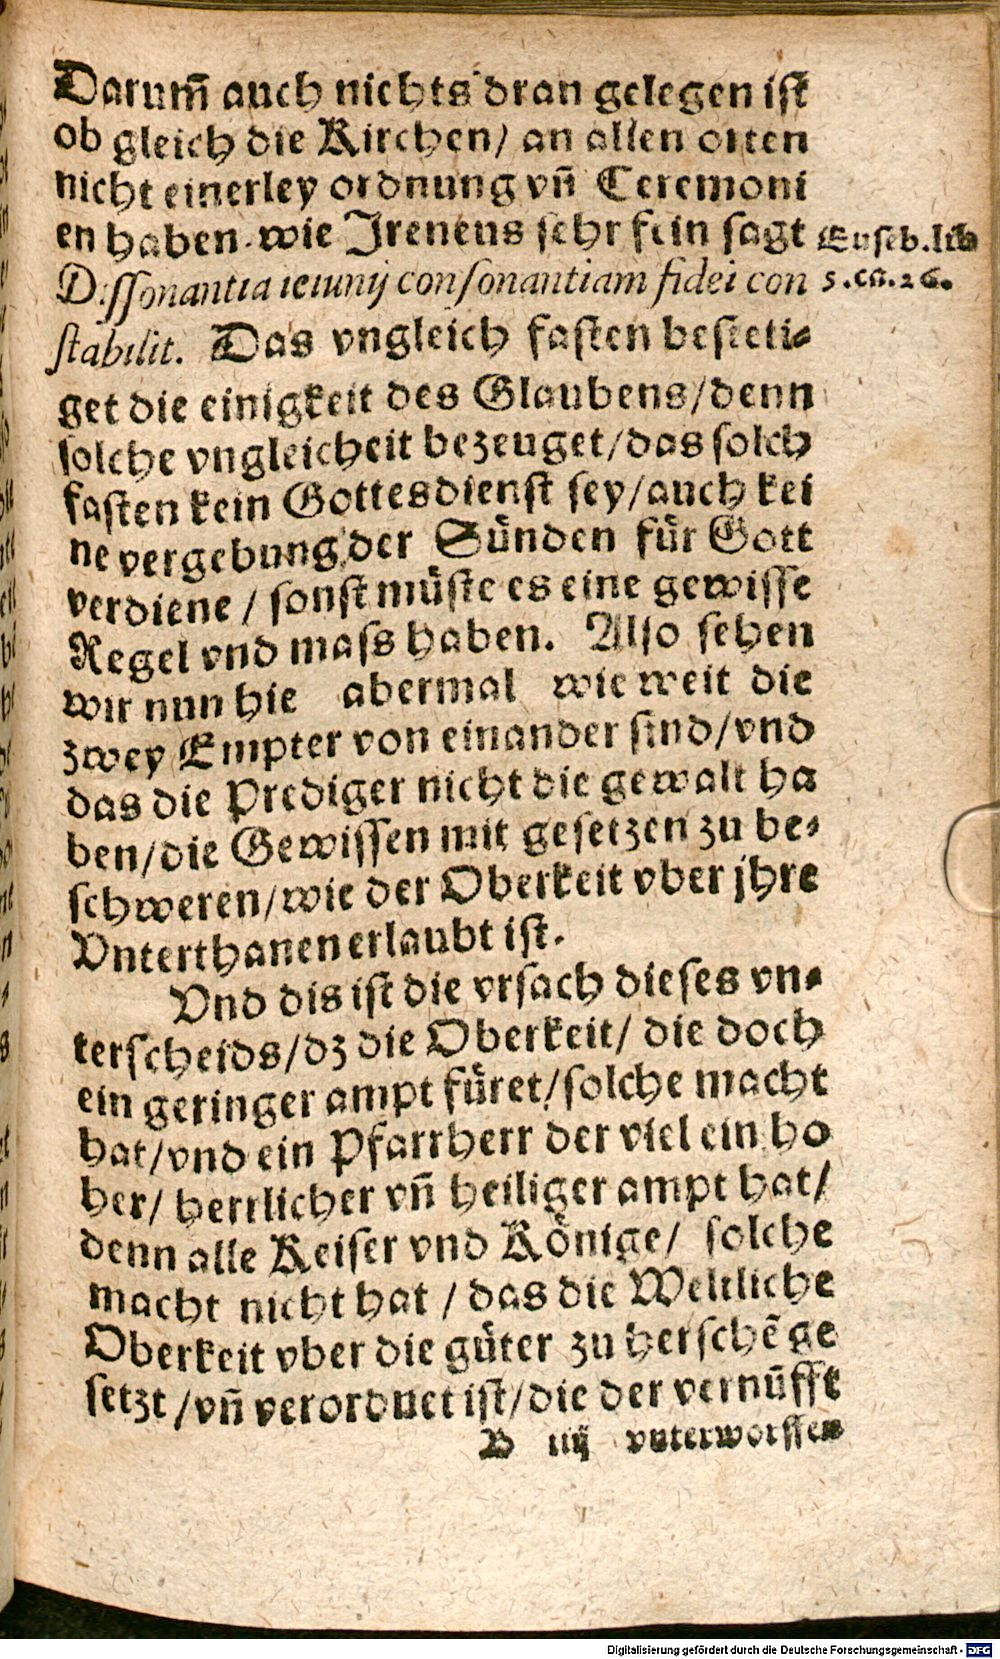 Darum̃ auch nichts dran gelegen ist
ob gleich die Kirchen/ an allen orten
nicht einerley ordnung vñ Ceremoni
en haben. wie Ireneus sehr fein sagt
Euseb. lib
Dissonantia ieiunij consonantiam fidei con
5. ca. 26.
stabilit. Das vngleich fasten besteti-
get die einigkeit des Glaubens/denn
solche vngleicheit bezeuget/das solch
fasten kein Gottesdienst sey/auch kei
ne vergebung der Sünden für Gott
verdiene / sonst müste es eine gewisse
Regel vnd mass haben. Also sehen
wir nun hie abermal wie weit die
zwey Empter von einander sind/vnd
das die Prediger nicht die gewalt ha
ben/die Gewissen mit gesetzen zu be-
schweren/wie der Oberkeit vber jhre
Vnterthanen erlaubt ist.
Vnd dis ist die vrsach dieses vn-
terscheids/dz die Oberkeit/ die doch
ein geringer ampt füret/solche macht
hat/vnd ein Pfarrherr der viel ein ho
her/ herrlicher vñ heiliger ampt hat/
denn alle Keiser vnd Könige/ solche
macht nicht hat / das die Weltliche
Oberkeit vber die güter zu herschẽ ge
setzt /vñ verordnet ist/die der vernũfft
B iiij vnterworffen
Digitalisierung gefördert durch die Deutsche Forschungsgemeinschaft - DFG